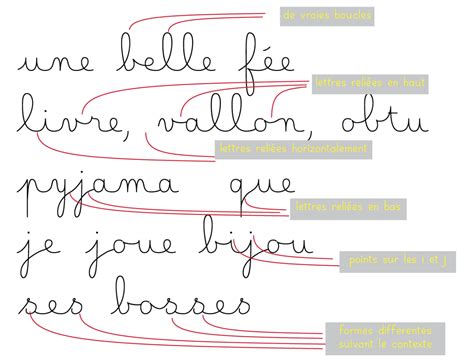 de vraies boucles
une belle fée
lettres reliées en haut
livre, vallon, obtu
lettres reliées horizontalement
pyjama que
lettres reliées en bas
je joue bijou
points sur les i et j
ses bosses
formes différentes
suivant le contexte